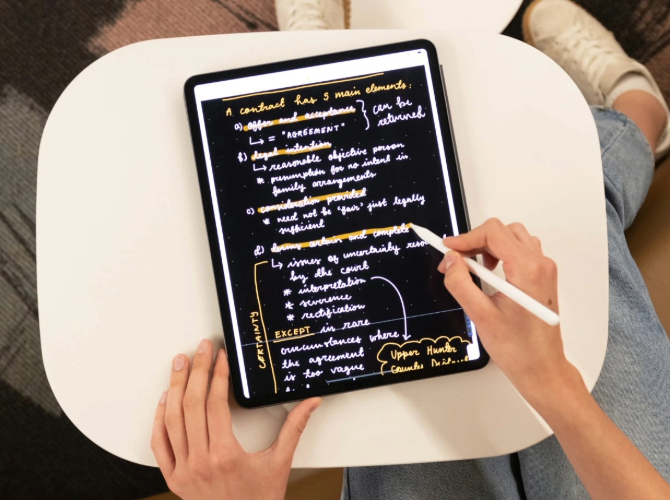 A contract has 5 main elements:
a) offer and acceptance } can be
↳ = "AGREEMENT" returned
b) legal intention
↳ reasonable objective person
* presumption for no intent in
family arrangements
c) consideration provided
* need not be 'fair' just legally
sufficient
d) terms certain and complete
↳ issues of uncertainty
by the court
* interpretation
* severence
* rectification
EXCEPT in rare
circumstances where
the agreement
is too vague
CERTAINTY
Upper Hunter